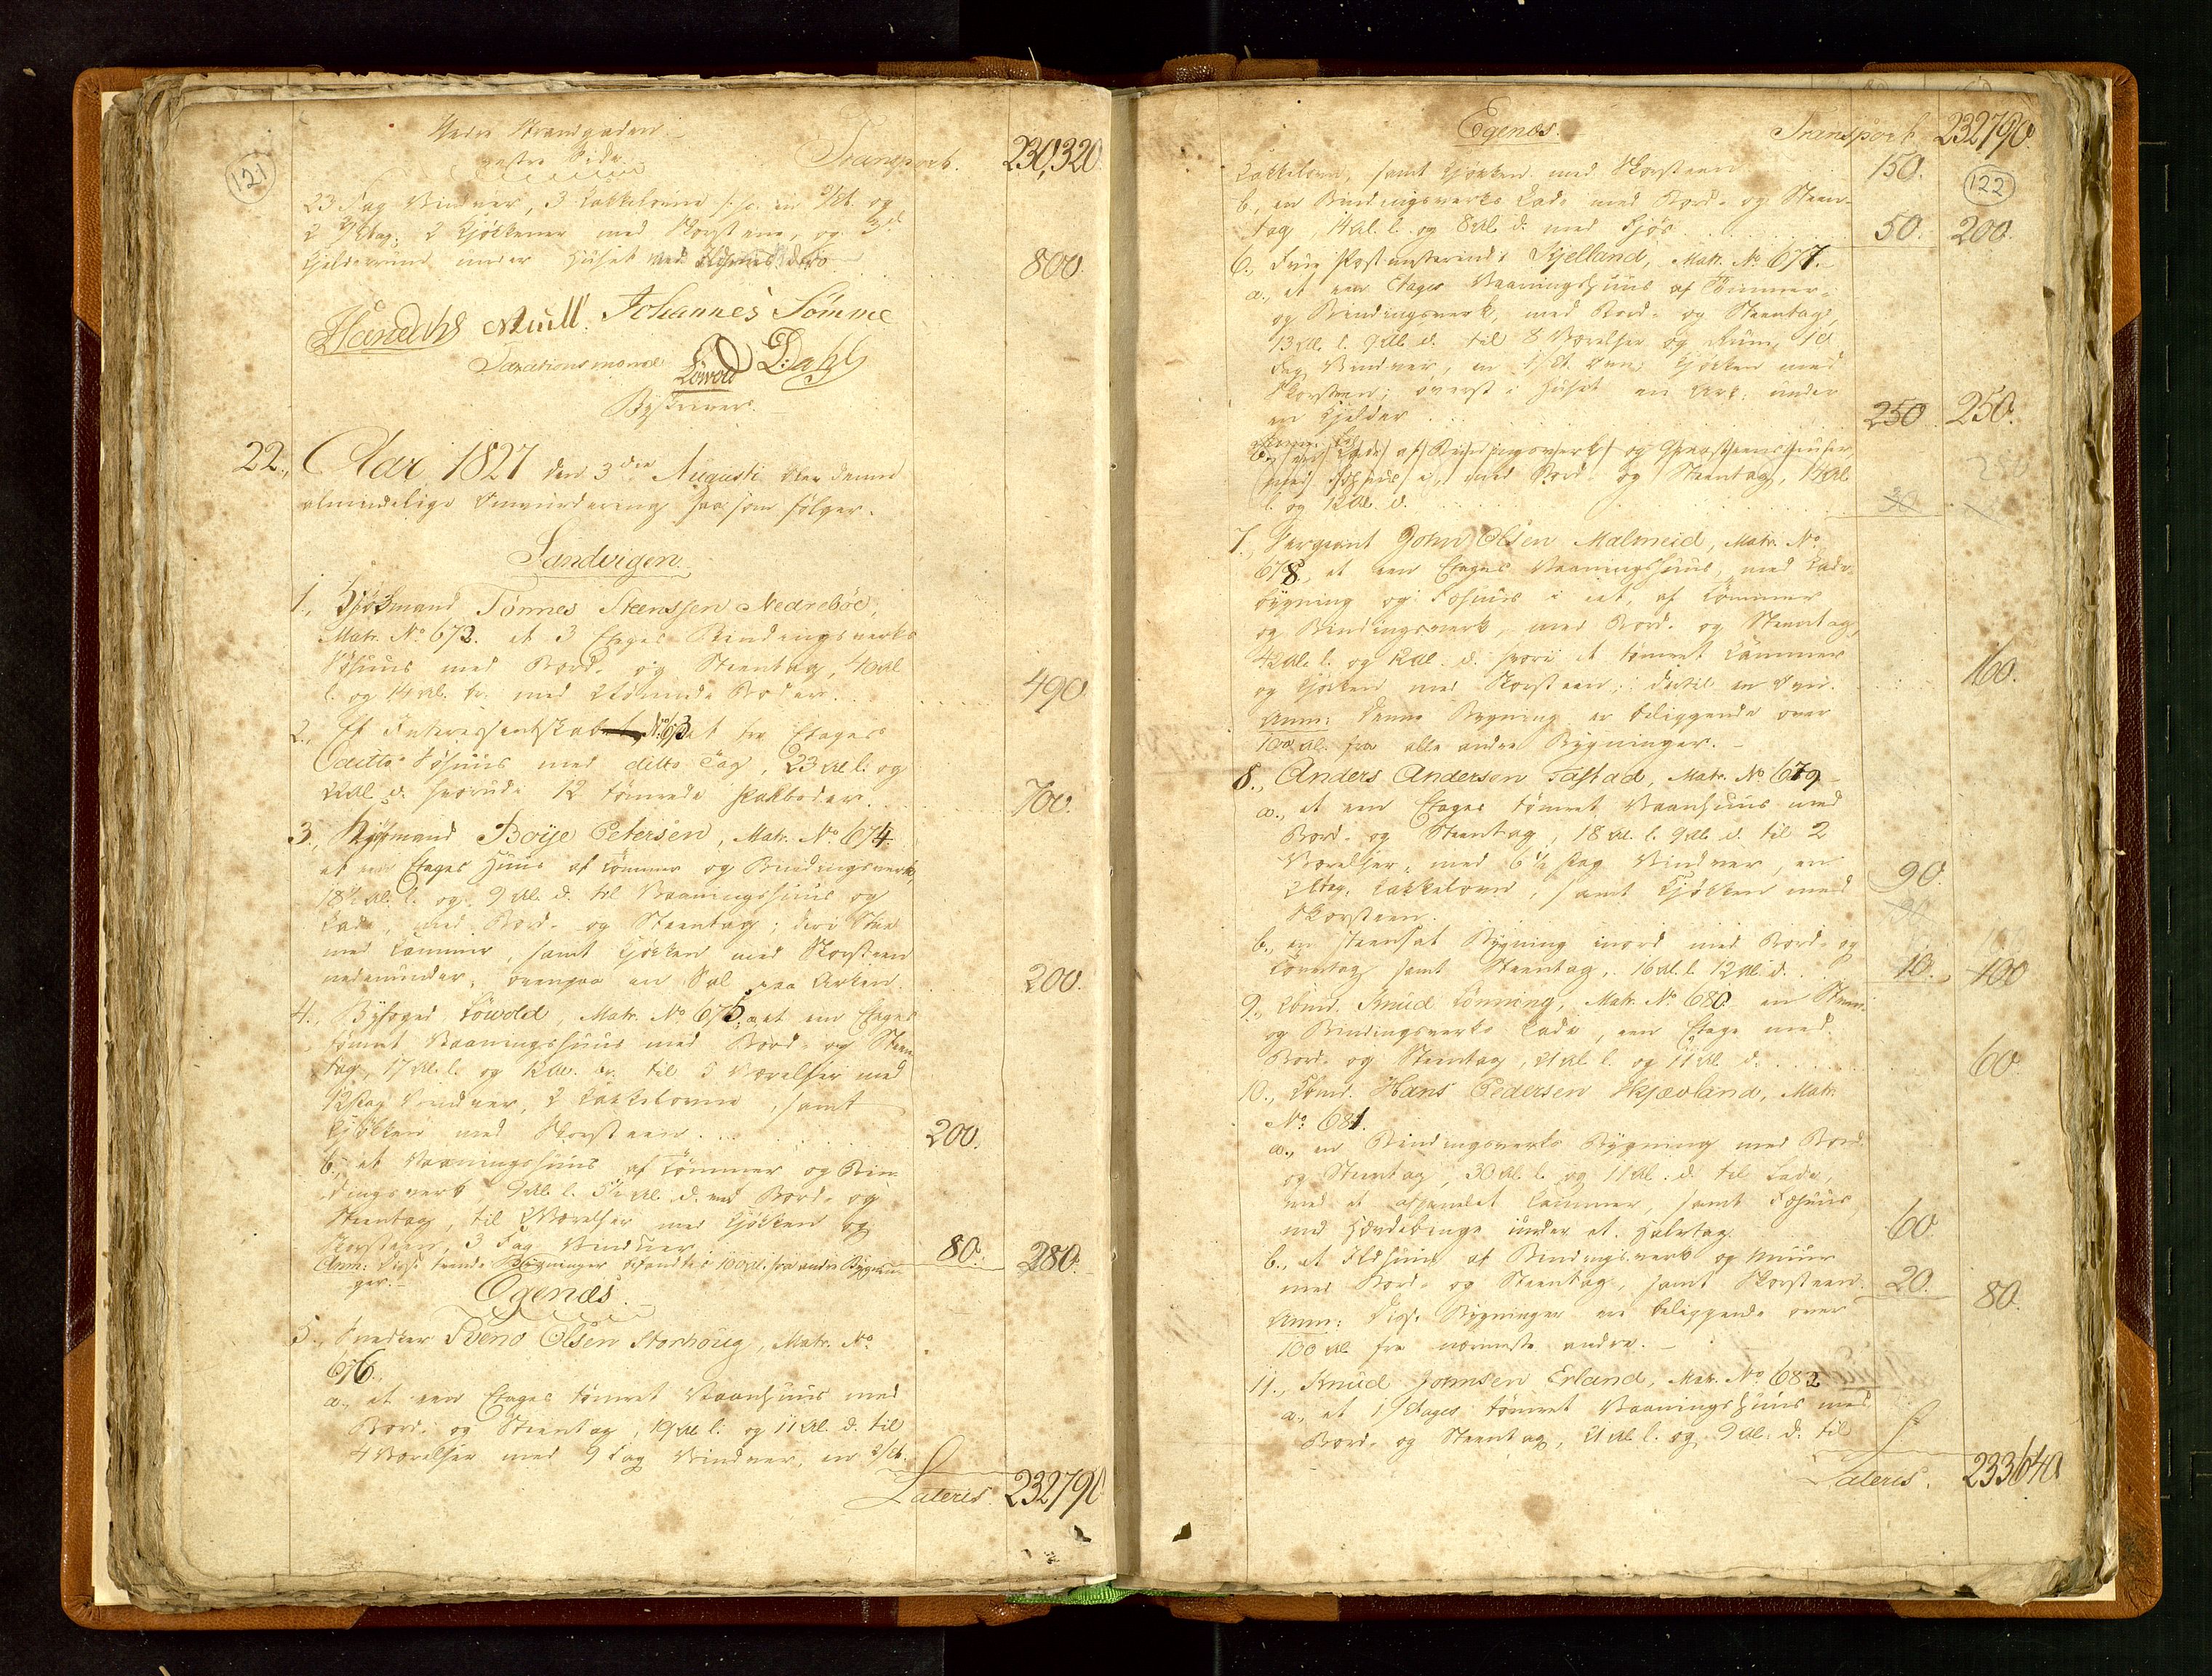 121
Nedre Strandgaden
vestre Side.
Transport. 230,320.
23 Fag Vinduer, 3 Kakkelovne og
2 2 Kjøkkener med Skorstene, og
Kjelderrum under Huset 800.
Johannes Sömme
Taxationsmænd Löwold D. Dahl
Byskriver.
22., Aar 1827 den 3die Augusti blev denne
almindelige Omvurdering som følger.
Sandvigen.
1., Kjøbmand Tönnes Steenssen Nedrebøe,
Matr. No 672. et 3 Etages Bindingsverks
Søhuus med Bord- og Steentag, 40 Al.
l. og 14 Al. br. med Boder. 490
2., Et Interessentskab No 673 et tre Etages
ditto Søhuus med ditto Tag, 23 Al. l. og
22 Al. d. hvorudi 12 tømrede Pakboder. 700.
3., Kjøbmand Boye Petersen, Matr. No 674.
et een Etages Huus af Tømmer og Bindingsverk,
18½ Al. l. og 9 Al. d. til Vaaningshuus og
Lade, med Bord- og Steentag; deri Stue
med Kammer, samt Kjøkken med Skorsteen
nedenunder, ovenpaa en Sal paa Arken. 200.
4., Byfoged Löwold, Matr. No 675, a, et een Etages
tømret Vaaningshuus med Bord- og Steen-
tag, 17 Al. l. og 12 Al. br. til 5 Værelser med
12 Fag Vinduer, 2 Kakkelovne, samt
Kjøkken med Skorsteen. 200.
b., et Vaaningshuus af Tømmer og Bin-
dingsverk, 9 Al. l. 5½ Al. d. med Bord- og
Steentag, til 2 Værelser med Kjøkken og
Skorsteen, 3 Fag Vinduer. 80. 280.
Anm: Disse tvende Bygninger befandtes 100 Al. fra andre Bygnin-
ger.
Egenæs.
5., Snedker Svend Olsen Storhoug, Matr. No
676.
a., et een Etages tømret Vaanhuus med
Bord- og Steentag, 19 Al. l. og 11 Al. d. til
4 Værelser med 9 Fag Vinduer, en 2/Et.
Lateris. 232790
Egenæs. Transport 232790.
122
Kakkelovn, samt Kjøkken med Skorsteen 150.
b., en Bindingsverks Lade med Bord- og Steen-
tag, 14 Al. l. og 8 Al. d. med Fjøs 50. 200.
6., Frue Postmesterinde Kjelland, Matr. No 677.
a., et een Etages Vaaningshuus af Tømmer-
og Bindingsverk, med Bord- og Steentag,
13 Al. l. 9 Al. d. til 8 Værelser og Rum, 10
Fag Vinduer, en Ovn, Kjøkken med
Skorsteen; øverst i Huset en Ark; under
en Kjelder 250 250.
b., en Lade af Bindingsverk og Graasteensmuur,
med Fæhuus i, med Bord- og Steentag, 14 Al.
l. og 12 Al. d. 30
7., Sergeant John Olsen Malmeid, Matr. No
678., et een Etages Vaaningshuus med Lade-
bygning og Fæhuus i eet, af Tømmer
og Bindingsverk, med Bord- og Steentag,
42 Al. l. og 12 Al. d. hvori et tømret Kammer
og Kjøkken med Skorsteen; dertil en Ovn. 160.
Anm: Denne Bygning er beliggende over
100 Al. fra alle andre Bygninger.
8., Anders Anderson Tastad, Matr. No 679
a., et een Etages tømret Vaanhuus med
Bord- og Steentag, 18 Al. l. 9 Al. d. til 2
Værelser, med 6½ Fag Vinduer, en
2 Etag. Kakkelovn, samt Kjøkken med 90.
Skorsteen.
b., en steensat Bygning med Bord- og
samt Steentag, 16 Al. l. 12 Al. d. 10. 100
9., Knud Lönning, Matr. No 680 en Steen-
og Bindingsverks Lade, een Etage med
Bord- og Steentag, 21 Al. l. og 11 Al. d. 60.
10., Hans Pedersen Skjævland, Matr.
No 681.
a., en Bindingsverks Bygning med Bord-
og Steentag, 30 Al. l. og 11 Al. d. til Lade,
med et Kammer, samt Fæhuus
med under et Halvtag 60.
b., et Ildhuus af Bindingsverk og Muur
med Bord- og Steentag, samt Skorsteen. 20. 80.
Anm: Disse Bygninger ere beliggende over
100 Al. fra nærmeste andre.
11., Knud Johnsen Erland, Matr. No 682
a., et 1 Etages tømret Vaaningshuus med
Bord- og Steentag, 21 Al. l. og 9 Al. d. til
Lateris. 233640